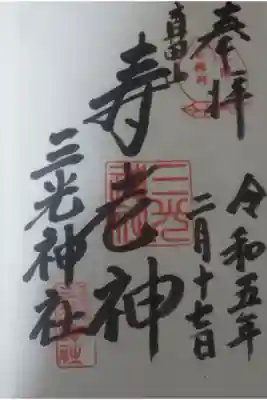 奉拝
真田山
令和五年
二月十七日
寿老神
三光神社